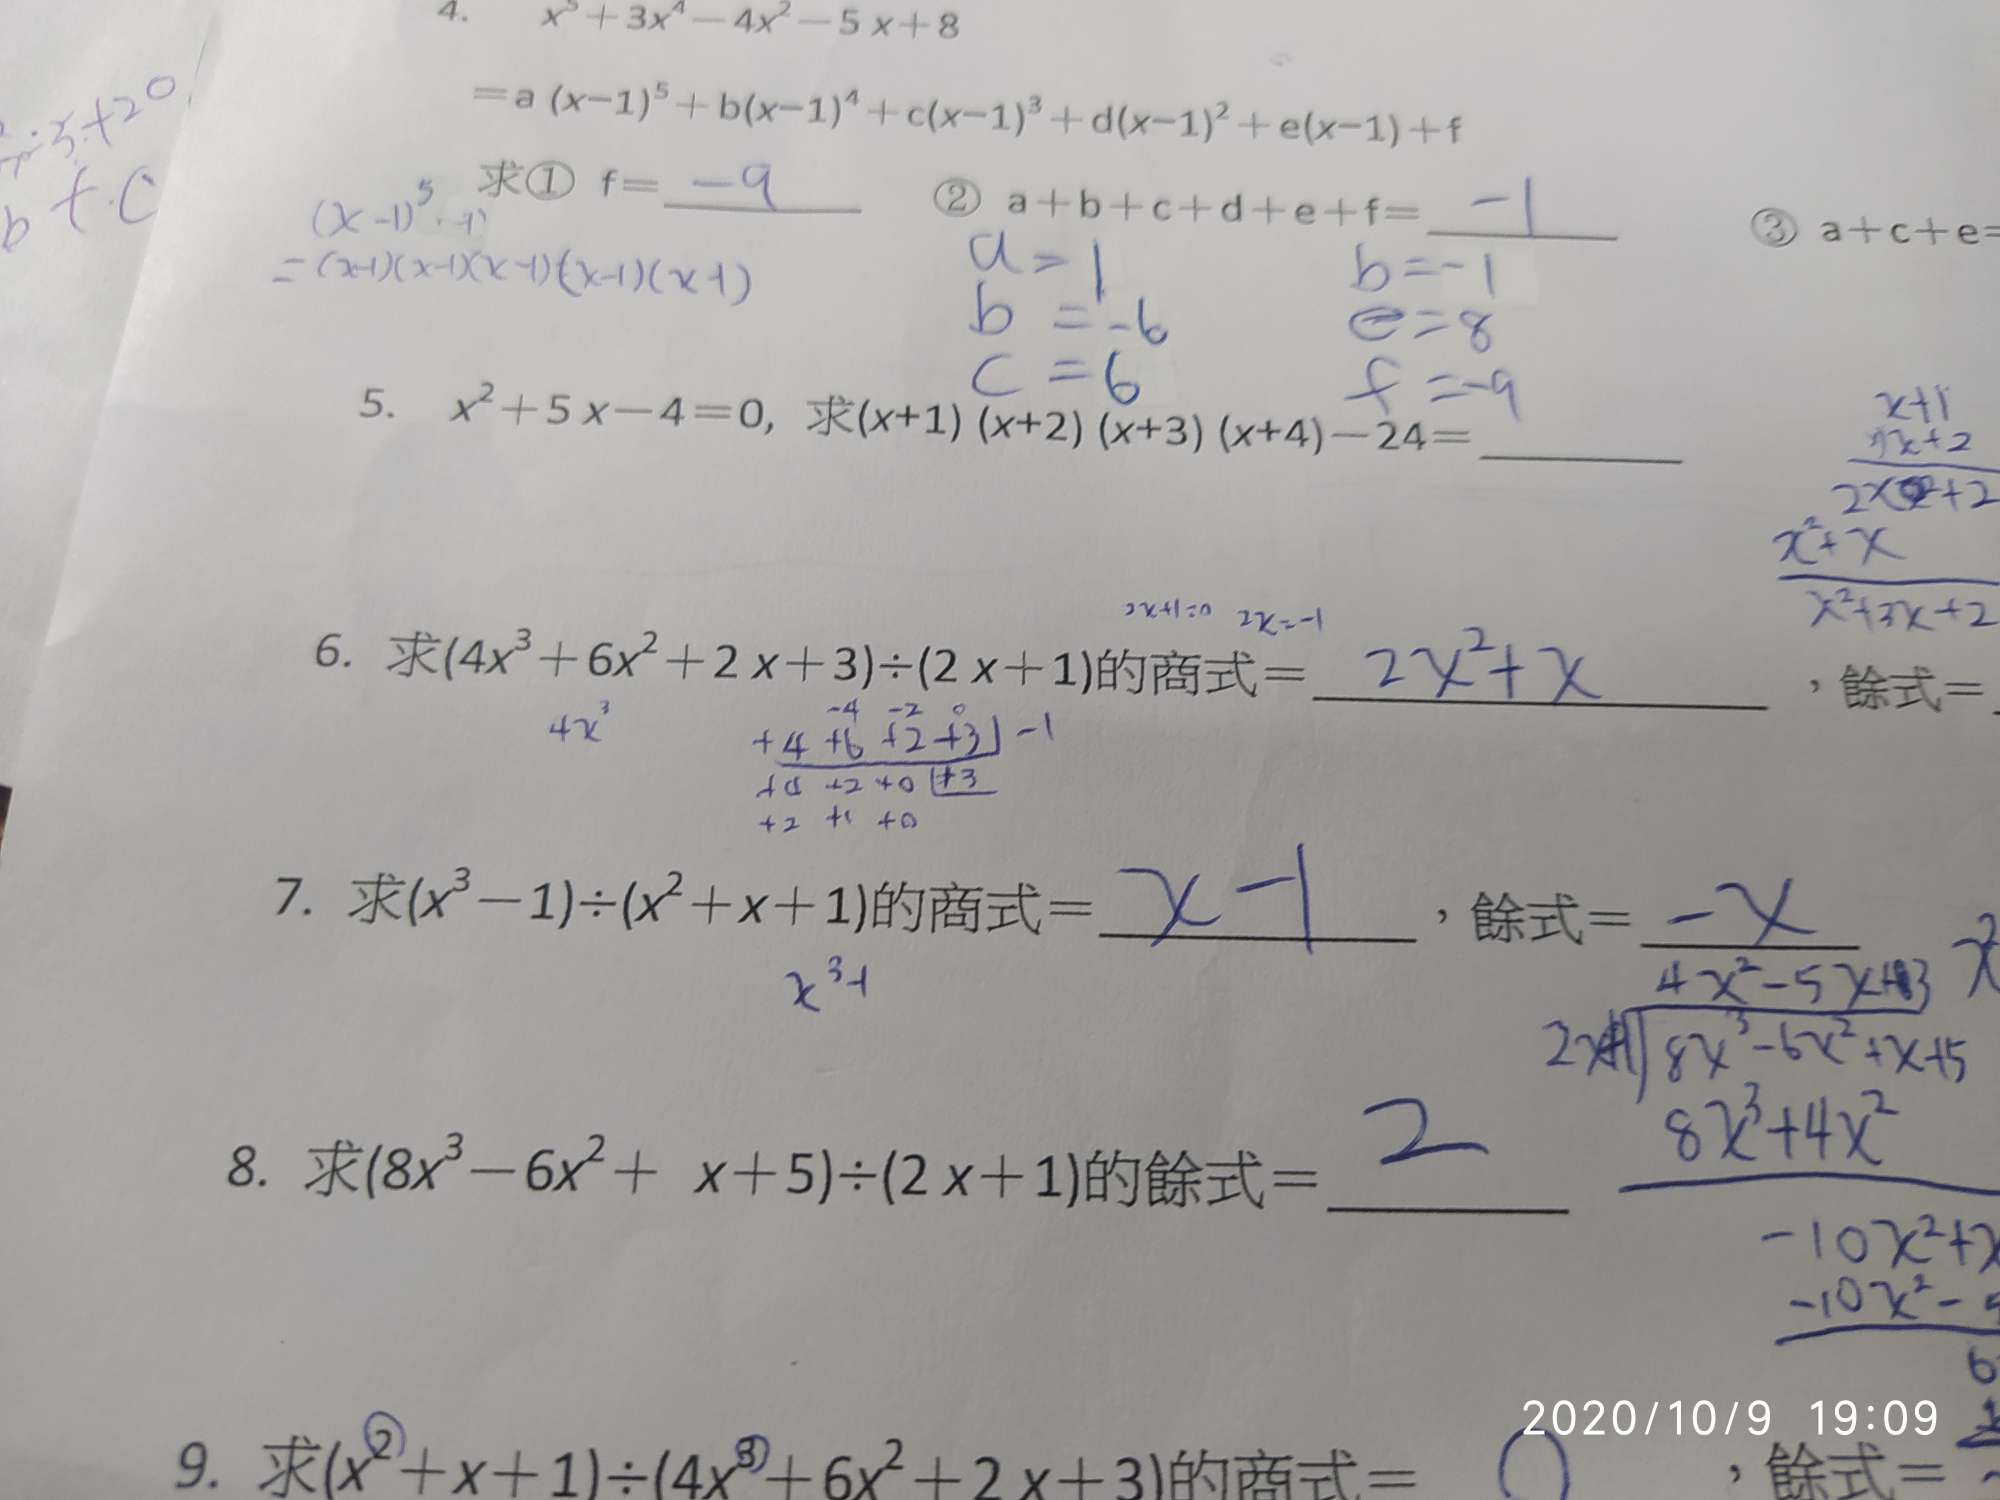 4. x⁵+3x⁴−4x²−5x+8
=a(x−1)⁵+b(x−1)⁴+c(x−1)³+d(x−1)²+e(x−1)+f
求① f= −9 ② a+b+c+d+e+f= −1 ③ a+c+e=
(x−1)⁵·
=(x−1)(x−1)(x−1)(x−1)(x−1)
a=1 b=−1
b=−6 e=8
c=6 f=−9
+c
5. x²+5x−4=0, 求(x+1)(x+2)(x+3)(x+4)−24=
x+1
x+2
+2
x²+x
x²+3x+2
2x+1=0 2x=−1
6. 求(4x³+6x²+2x+3)÷(2x+1)的商式= 2x²+x ，餘式=
4x³
−4 −2 0
+4 +6 +2 +3 −1
+4 +2 +0 +3
+2 +1 +0
7. 求(x³−1)÷(x²+x+1)的商式= x−1 ，餘式= −x
x³+
4x²−5x+3
2x+1 8x³−6x²+x+5
8x³+4x²
−10x²+x
−10x²−5
6
8. 求(8x³−6x²+ x+5)÷(2x+1)的餘式= 2
9. 求(x²+x+1)÷(4x³+6x²+2x+3)的商式= 0 ，餘式=
2020/10/9 19:09